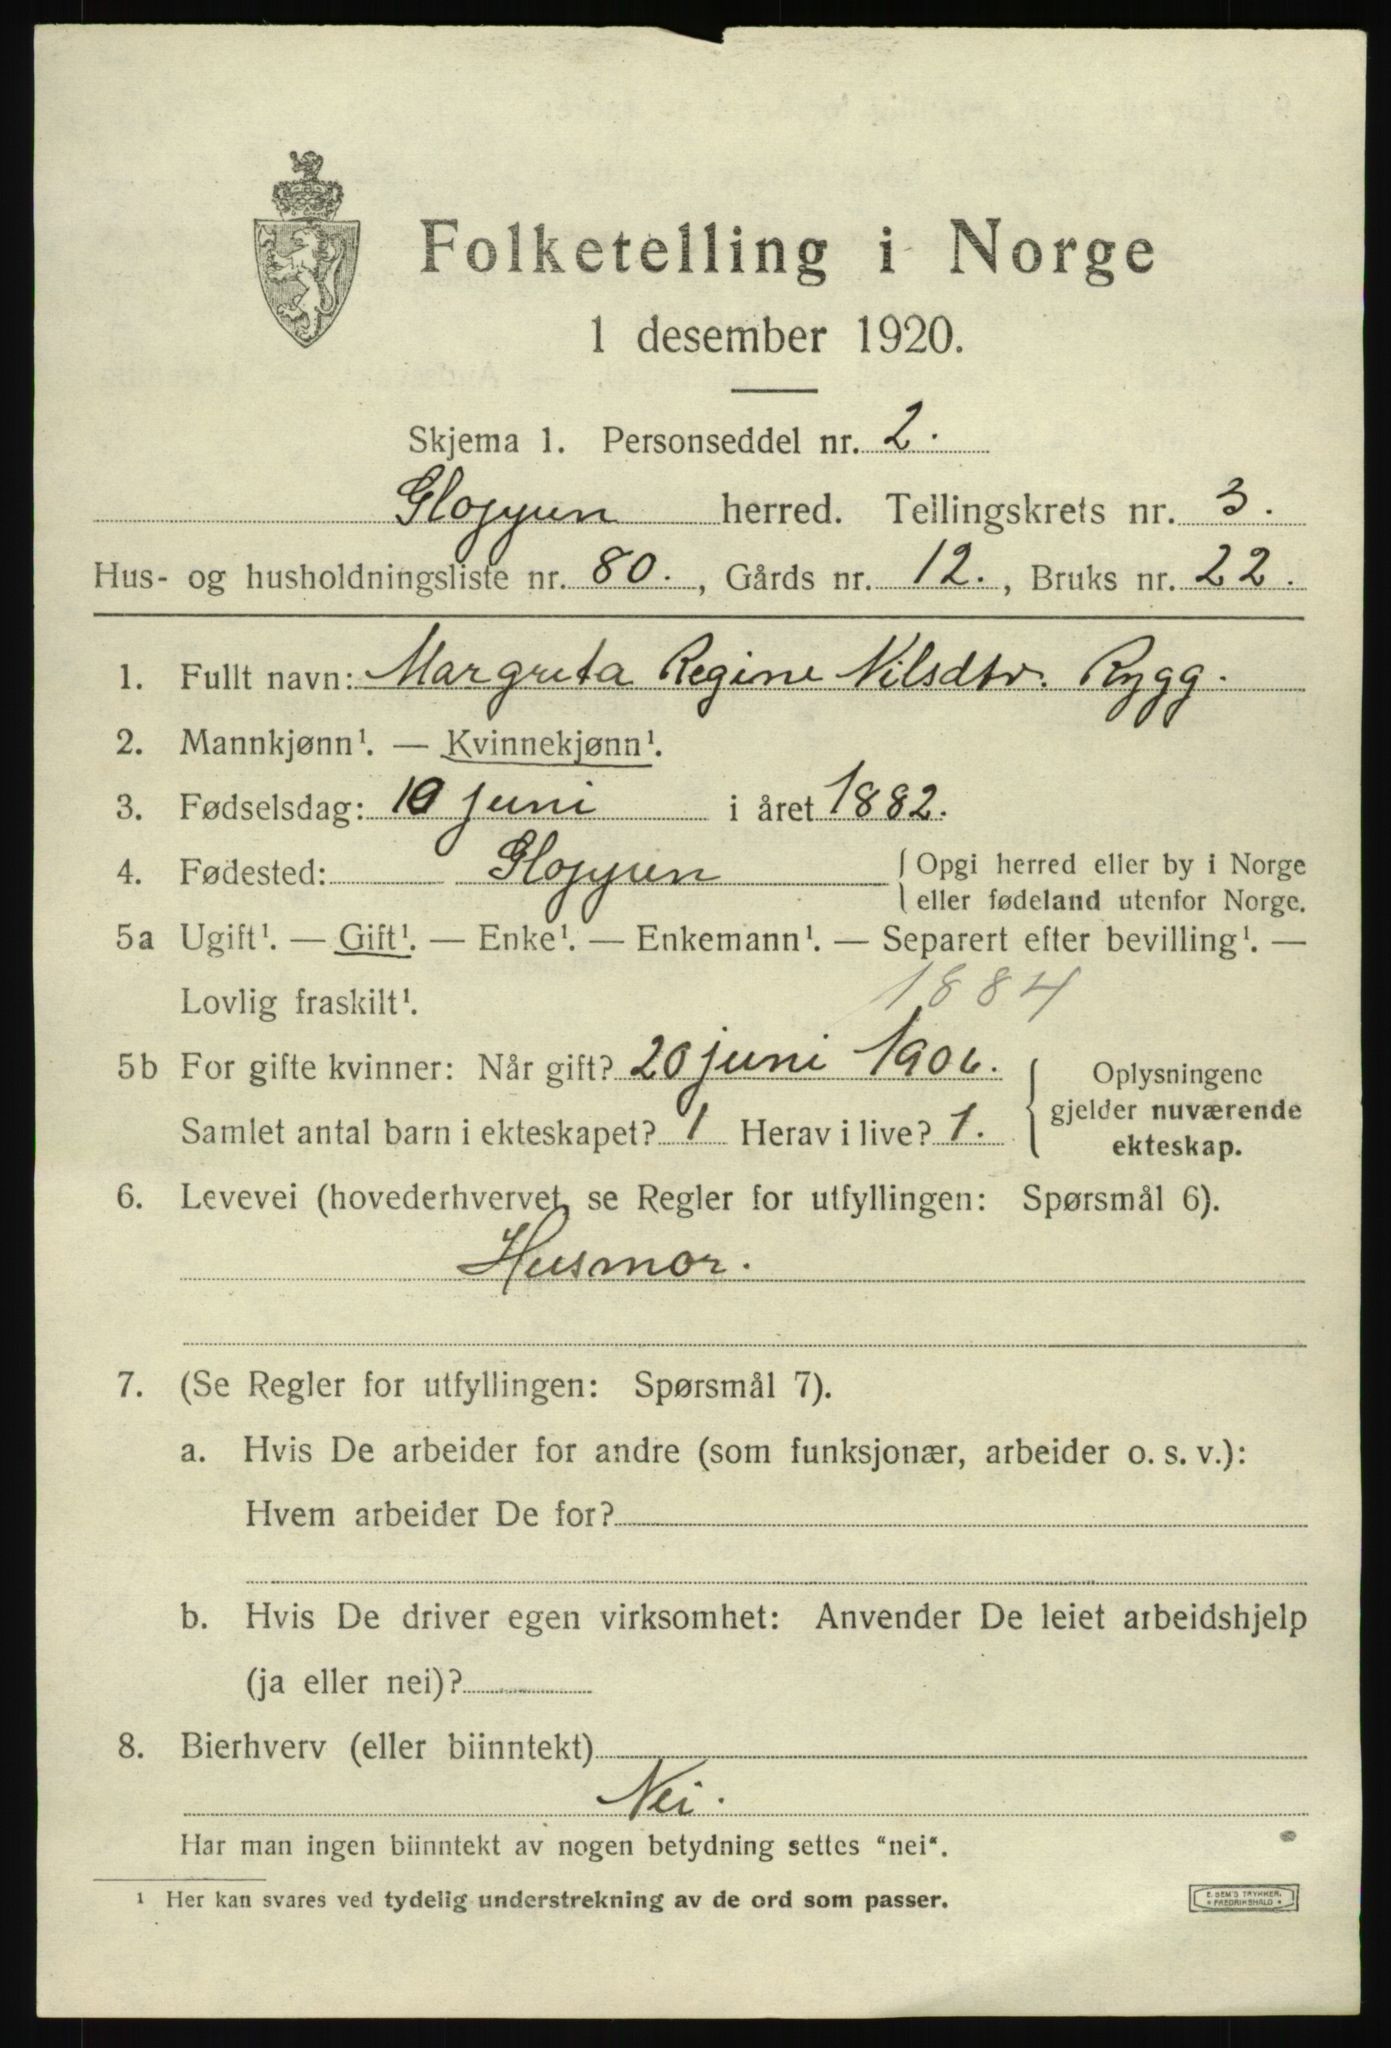 Folketelling i Norge
1 desember 1920.
Skjema 1. Personseddel nr. 2.
Gloppen herred. Tellingskrets nr. 3.
Hus- og husholdningsliste nr. 80., Gårds nr. 12., Bruks nr. 22.
1. Fullt navn: Margreta Regine Nilsdtr. Rygg.
2. Mannkjønn¹. — Kvinnekjønn¹.
3. Fødselsdag: 10 juni i året 1882.
4. Fødested: Gloppen { Opgi herred eller by i Norge
eller fødeland utenfor Norge.
5a Ugift¹. — Gift¹. — Enke¹. — Enkemann¹. — Separert efter bevilling¹. —
Lovlig fraskilt¹. 1884
5b For gifte kvinner: Når gift? 20 juni 1906.
Samlet antal barn i ekteskapet? 1 Herav i live? 1.
{ Oplysningene
gjelder nuværende
ekteskap.
6. Levevei (hovederhvervet, se Regler for utfyllingen: Spørsmål 6).
Husmor.
7. (Se Regler for utfyllingen: Spørsmål 7).
a. Hvis De arbeider for andre (som funksjonær, arbeider o. s. v.):
Hvem arbeider De for?
b. Hvis De driver egen virksomhet: Anvender De leiet arbeidshjelp
(ja eller nei)?
8. Bierhverv (eller biinntekt)
Nei.
Har man ingen biinntekt av nogen betydning settes "nei".
¹ Her kan svares ved tydelig understrekning av de ord som passer.
E. SEM'S TRYKKERI,
• FREDRIKSHALD •